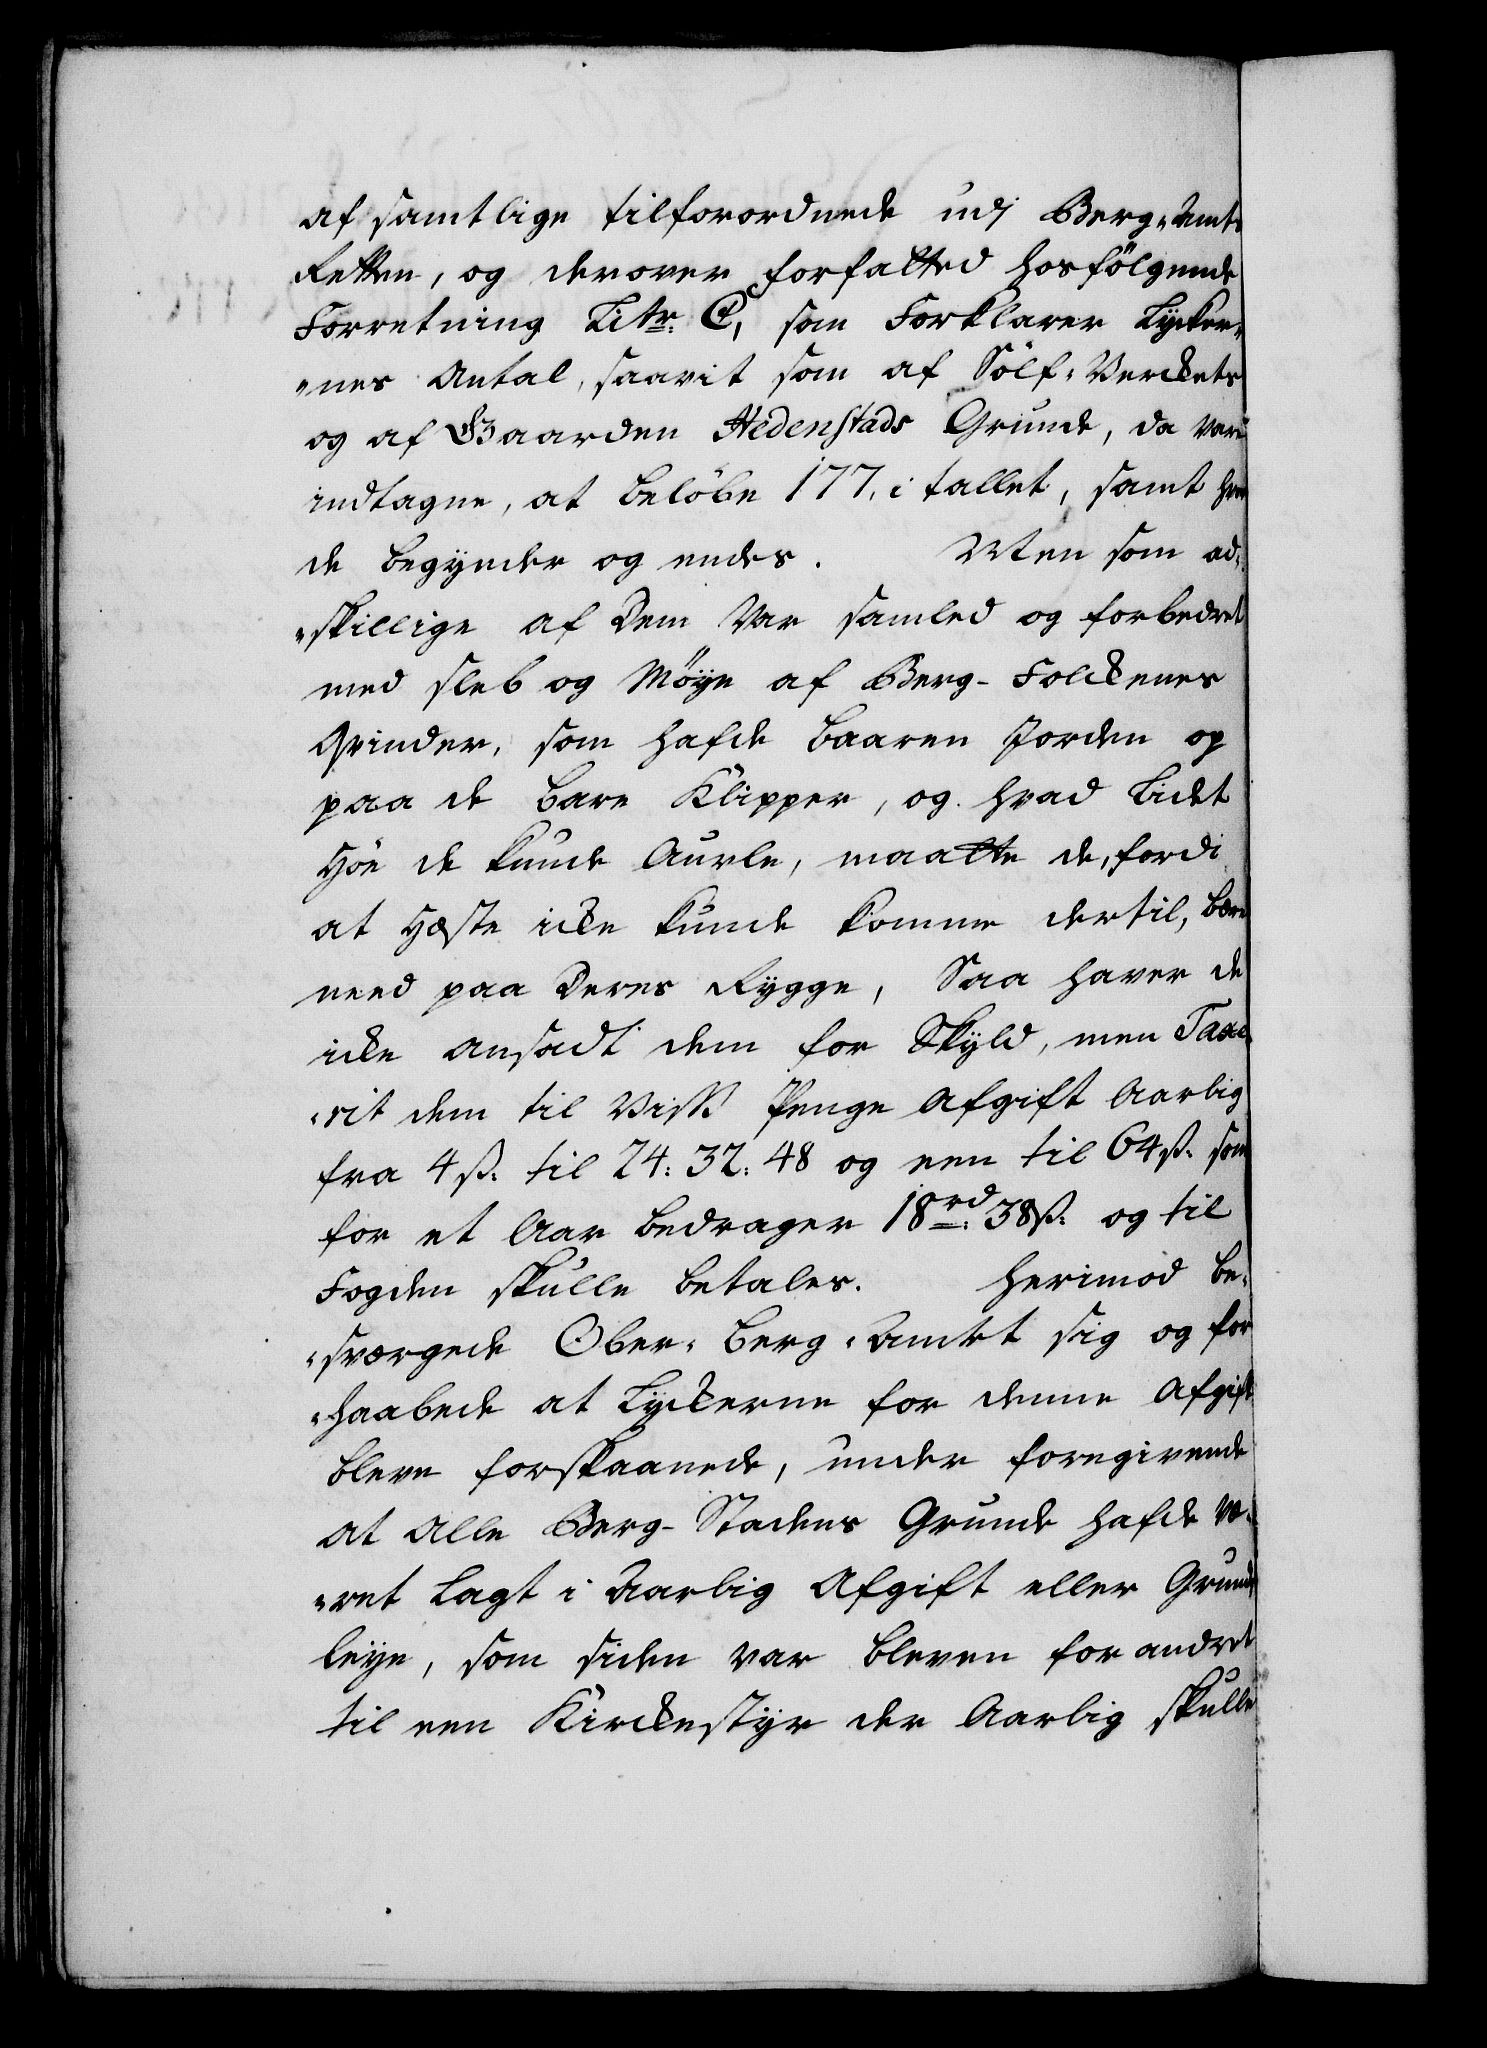 af samtlige tilforordnede udj Berg-Amts
Retten, og derover forfatted hosfölgende
Forretning Litr: C, som Forklarer Lycker-
-nes Antal, saavit som af Sölf-Verckets
og af Gaarden Hedenstads Grunde, da vare
indtagne, at belöbe 177, i tallet, samt hvor
de begynder og endes. Men som ad-
-skillige af dem var samled og forbedret
med sleb og Möye af Berg-Folckenes
Qvinder, som hafde baaren Jorden op
paa de bare Klipper, og hvad Lidet
Höe de kunde Aurle, maatte de, fordi
at Hæste icke kunde komme dertil, bære
need paa deres Rygge, Saa haver de
icke ansadt dem for Skyld, men Taxe-
-rit dem til viss Penge Afgift Aarlig
fra 4 ß. til 24: 32: 48 og een til 64 ß. som
for et Aar bedrager 18 rd: 38 ß. og til
Fogden skulle betales. Herimod be-
-sværgede Ober-Berg-Amtet sig og for
-haabede at Lyckerne for denne Afgift
bleve forskaanede, under foregivende
at alle Berg-Stadens Grunde hafde væ-
-ret Lagt i Aarlig Afgift eller Grund
leye, som siden var bleven forandret
til een Kirckestyr der Aarlig skulle